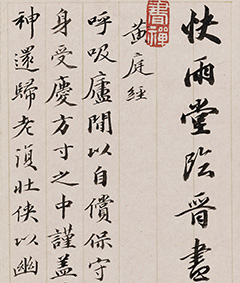 快雨堂臨晉書
書禪
黃庭經
呼吸廬間以自償保守
身受慶方寸之中謹蓋
神還歸老復壯俠以幽